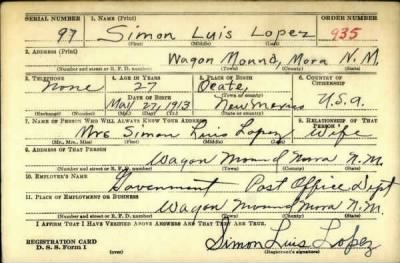 SERIAL NUMBER 1. NAME (Print) ORDER NUMBER
97 Simon Luis Lopez 935
(First) (Middle) (Last)
2. ADDRESS (Print)
Wagon Mound, Mora N.M.
(Number and street or R. F. D. number) (Town) (County) (State)
3. TELEPHONE 4. AGE IN YEARS 5. PLACE OF BIRTH 6. COUNTRY OF CITIZENSHIP
None 27 Ocate,
DATE OF BIRTH (Town or county)
May 27, 1913 New Mexico U.S.A.
(Exchange) (Number) (Mo.) (Day) (Yr.) (State or country)
7. NAME OF PERSON WHO WILL ALWAYS KNOW YOUR ADDRESS 8. RELATIONSHIP OF THAT PERSON
Mrs. Simon Luis Lopez Wife
(Mr., Mrs., Miss) (First) (Middle) (Last)
9. ADDRESS OF THAT PERSON
Wagon Mound Mora N.M.
(Number and street or R. F. D. number) (Town) (County) (State)
10. EMPLOYER'S NAME
Government Post Office Dept
11. PLACE OF EMPLOYMENT OR BUSINESS
Wagon Mound Mora N.M.
(Number and street or R. F. D. number) (Town) (County) (State)
I AFFIRM THAT I HAVE VERIFIED ABOVE ANSWERS AND THAT THEY ARE TRUE.
REGISTRATION CARD
D. S. S. Form 1
Simon Luis Lopez
(Registrant's signature)